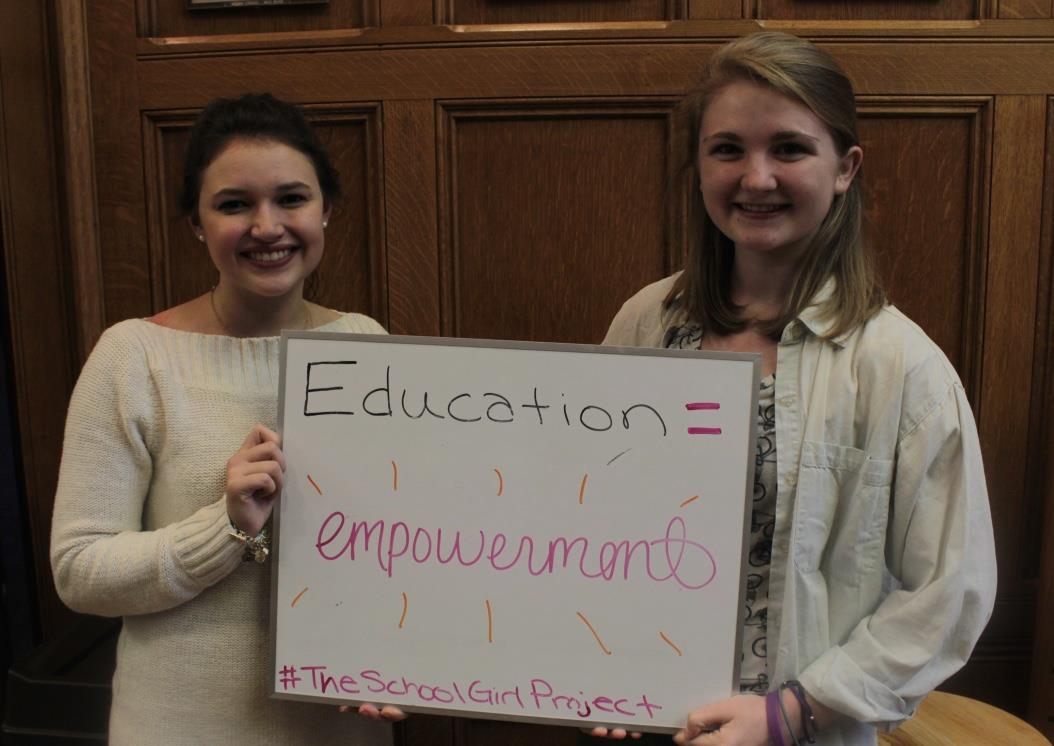 Education =
empowerment
#TheSchoolGirlProject